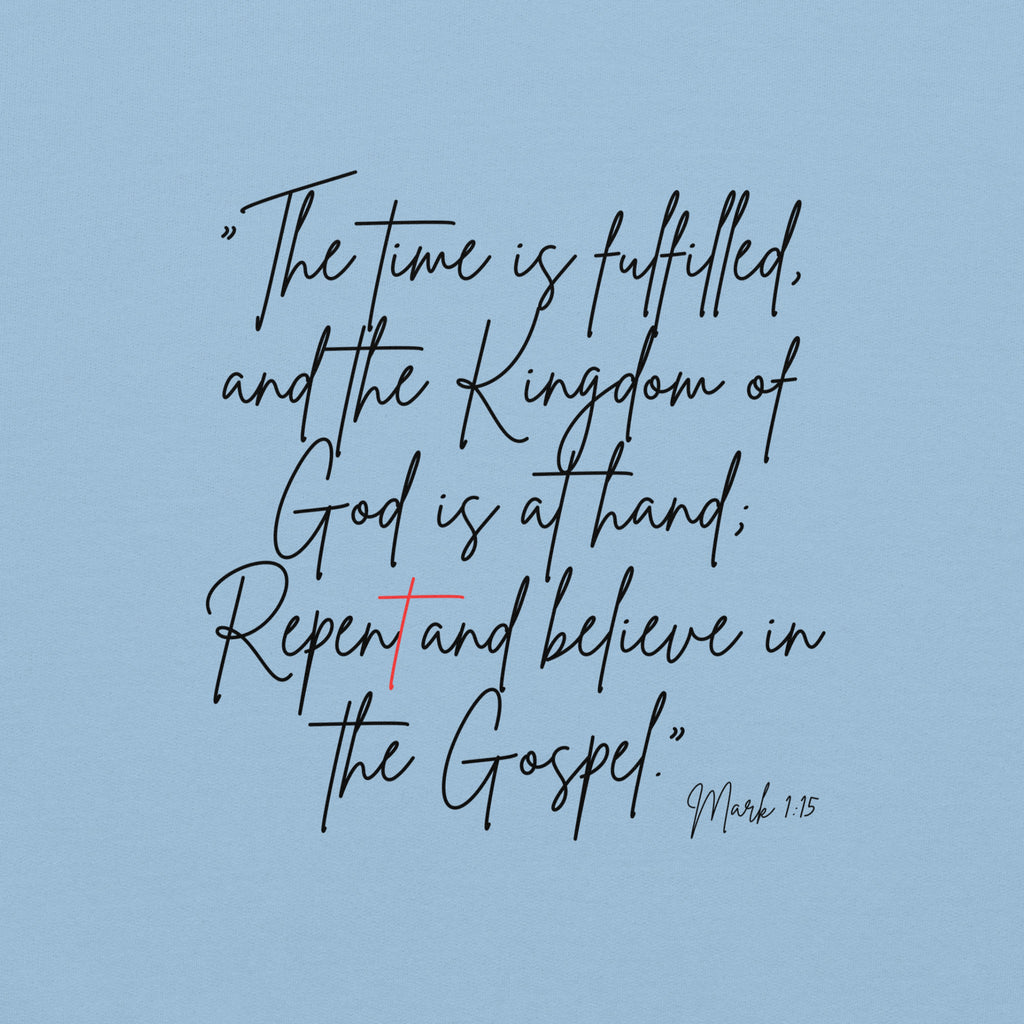 ”The time is fulfilled,
and the Kingdom of
God is at hand;
Repent and believe in
the Gospel.”
Mark 1:15